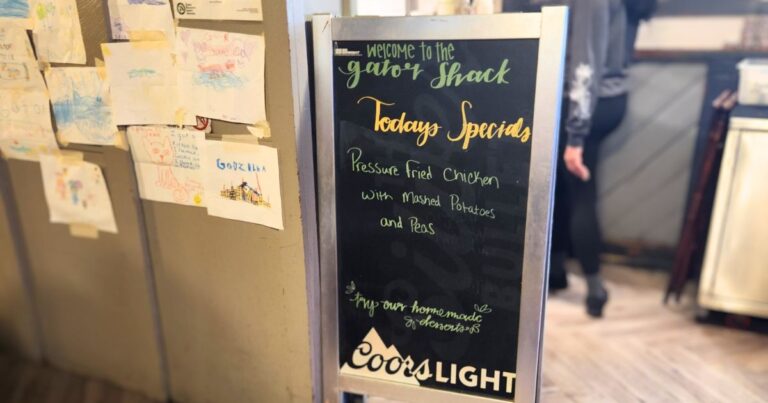 GODZILLA
Welcome to the
gator Shack
Todays Specials
Pressure Fried Chicken
with Mashed Potatoes
and Peas
try our homemade
desserts
Coors LIGHT